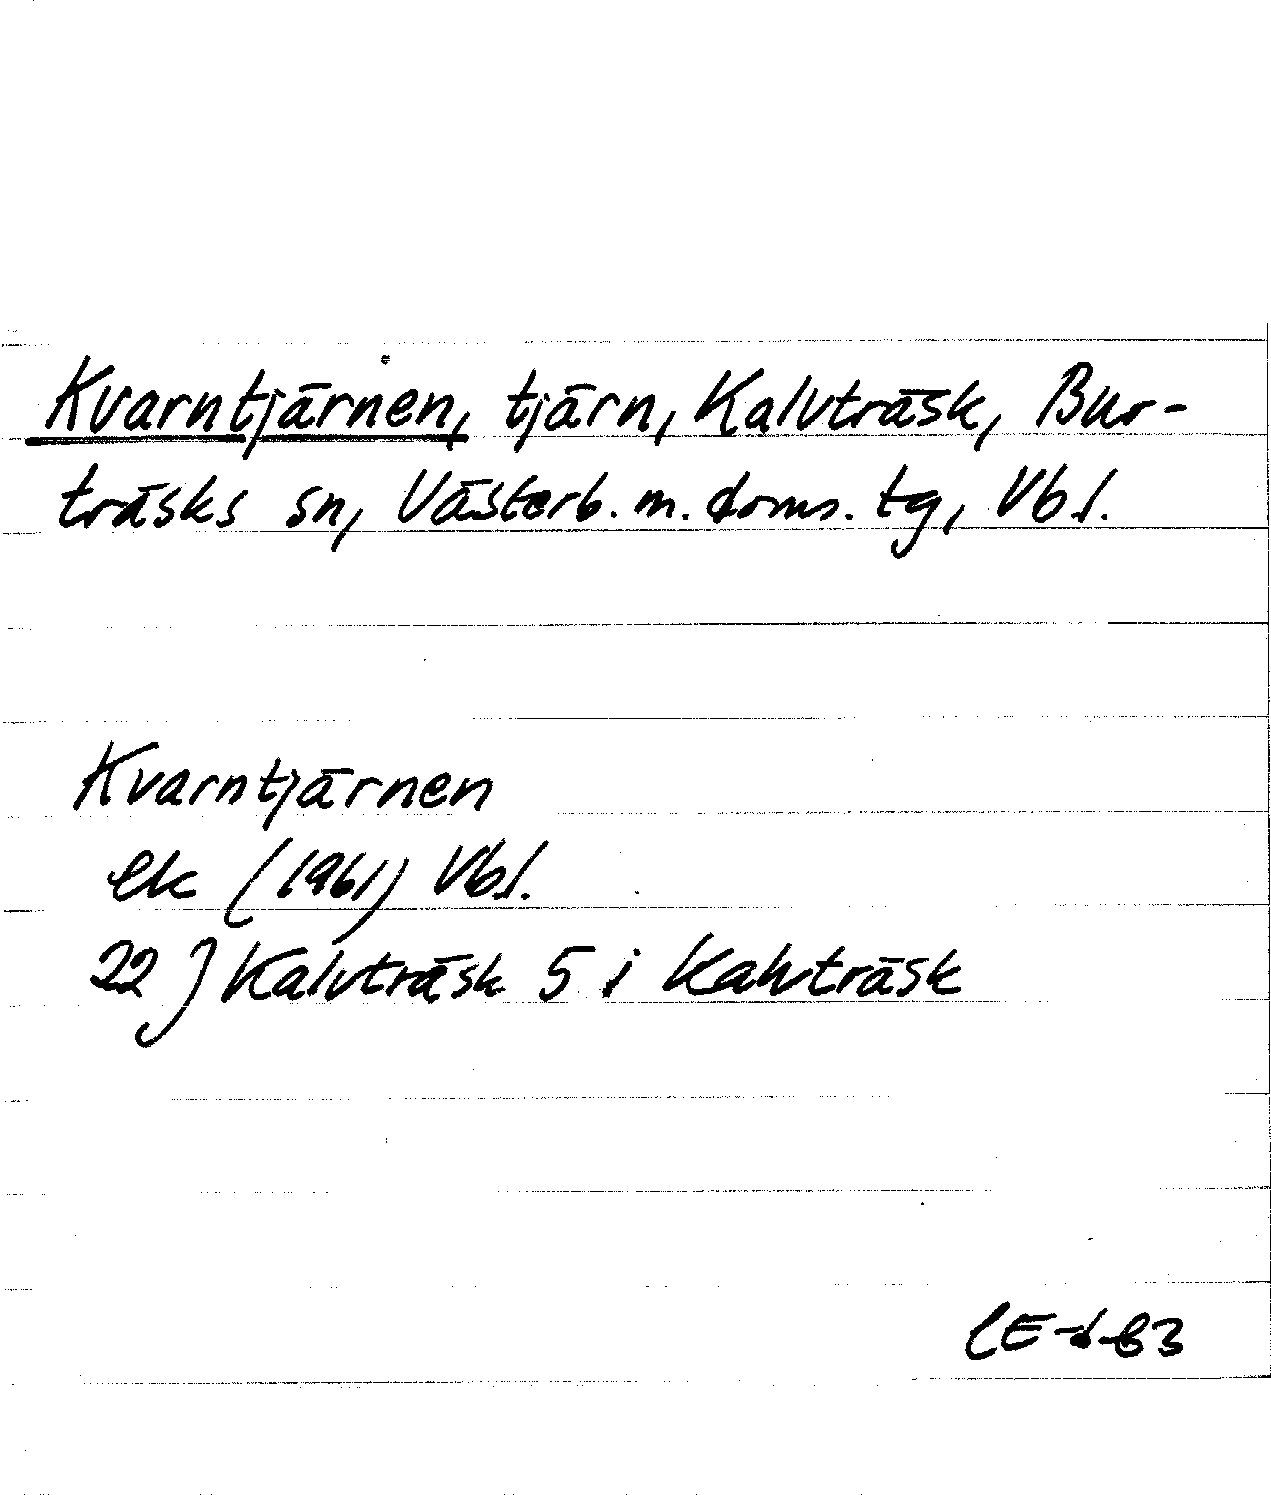 Kvarntjärnen, tjärn, Kalvträsk, Bur-
träsks sn, Västerb. m. doms. tg, Vbl.
Kvarntjärnen
ek (1961) Vbl.
22 J Kalvträsk 5 i Kalvträsk